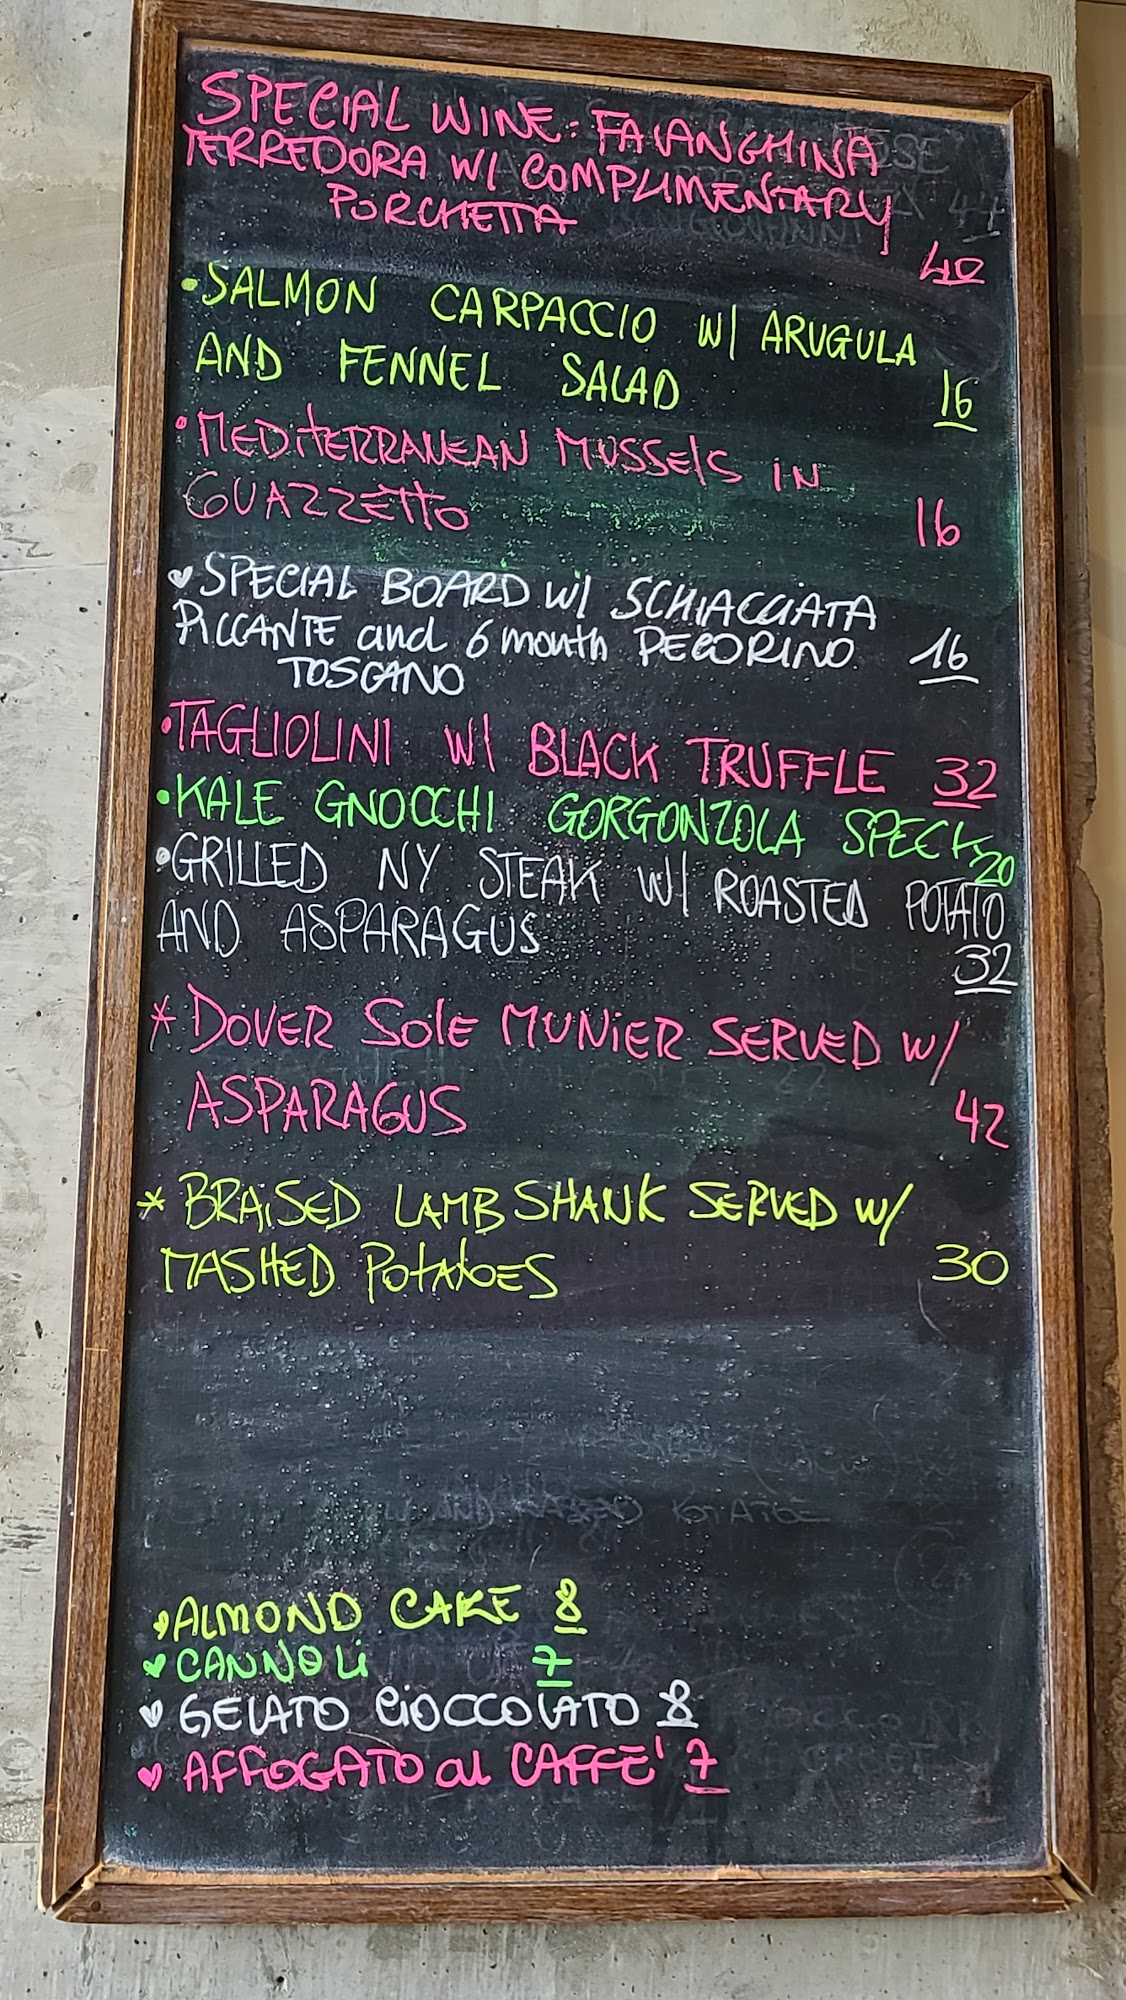 SPECIAL WINE: FALANGHINA
TERREDORA W/ COMPLIMENTARY
PORCHETTA
40
• SALMON CARPACCIO W/ ARUGULA
AND FENNEL SALAD 16
• MEDITERRANEAN MUSSELS IN
GUAZZETTO 16
♥ SPECIAL BOARD W/ SCHIACCIATA
PICCANTE and 6 month PECORINO 16
TOSCANO
• TAGLIOLINI W/ BLACK TRUFFLE 32
• KALE GNOCCHI GORGONZOLA SPECK 20
• GRILLED NY STEAK W/ ROASTED POTATO
AND ASPARAGUS 32
* DOVER SOLE MUNIER SERVED W/
ASPARAGUS 42
* BRAISED LAMB SHANK SERVED W/
MASHED POTATOES 30
♥ ALMOND CAKE 8
♥ CANNOLI 7
♥ GELATO CIOCCOLATO 8
♥ AFFOGATO al CAFFE' 7